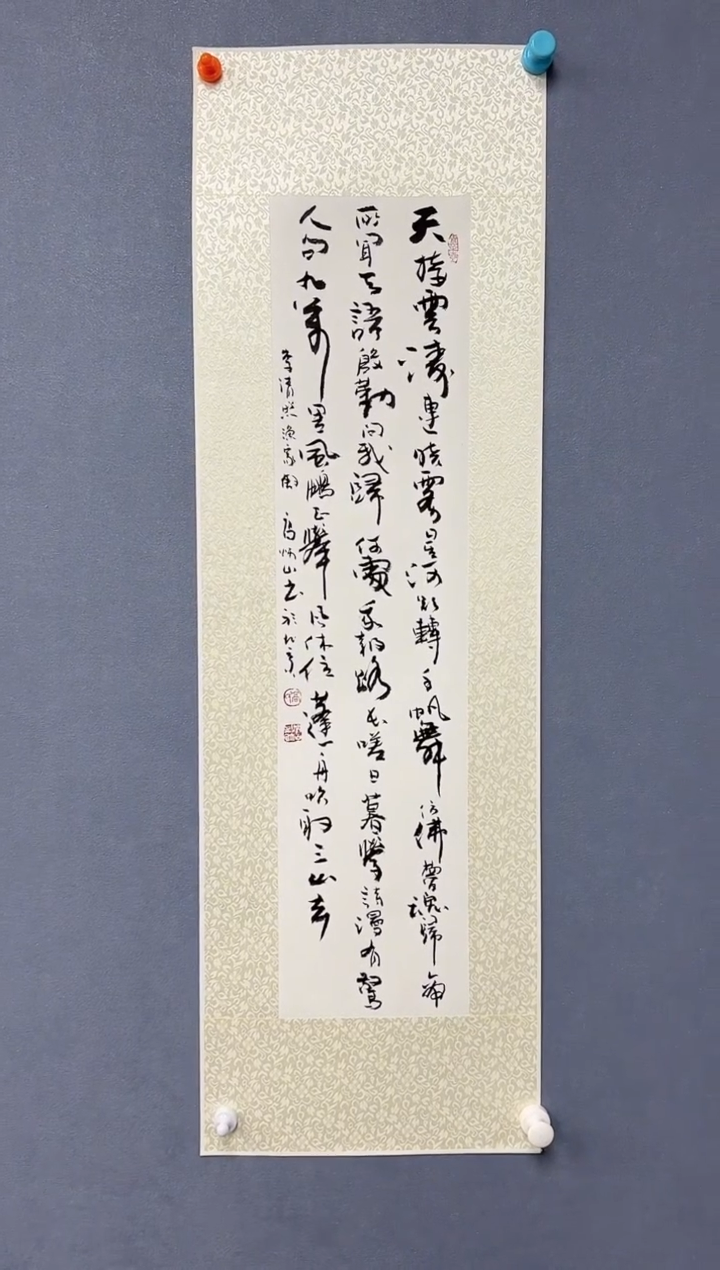 天接雲濤連曉霧星河欲轉千帆舞仿佛夢魂歸帝
所聞天語殷勤問我歸何處我報路長嗟日暮學詩漫有驚
人句九萬里風鵬正舉風休住蓬舟吹取三山去
李清照漁家傲 高炳山书於北京